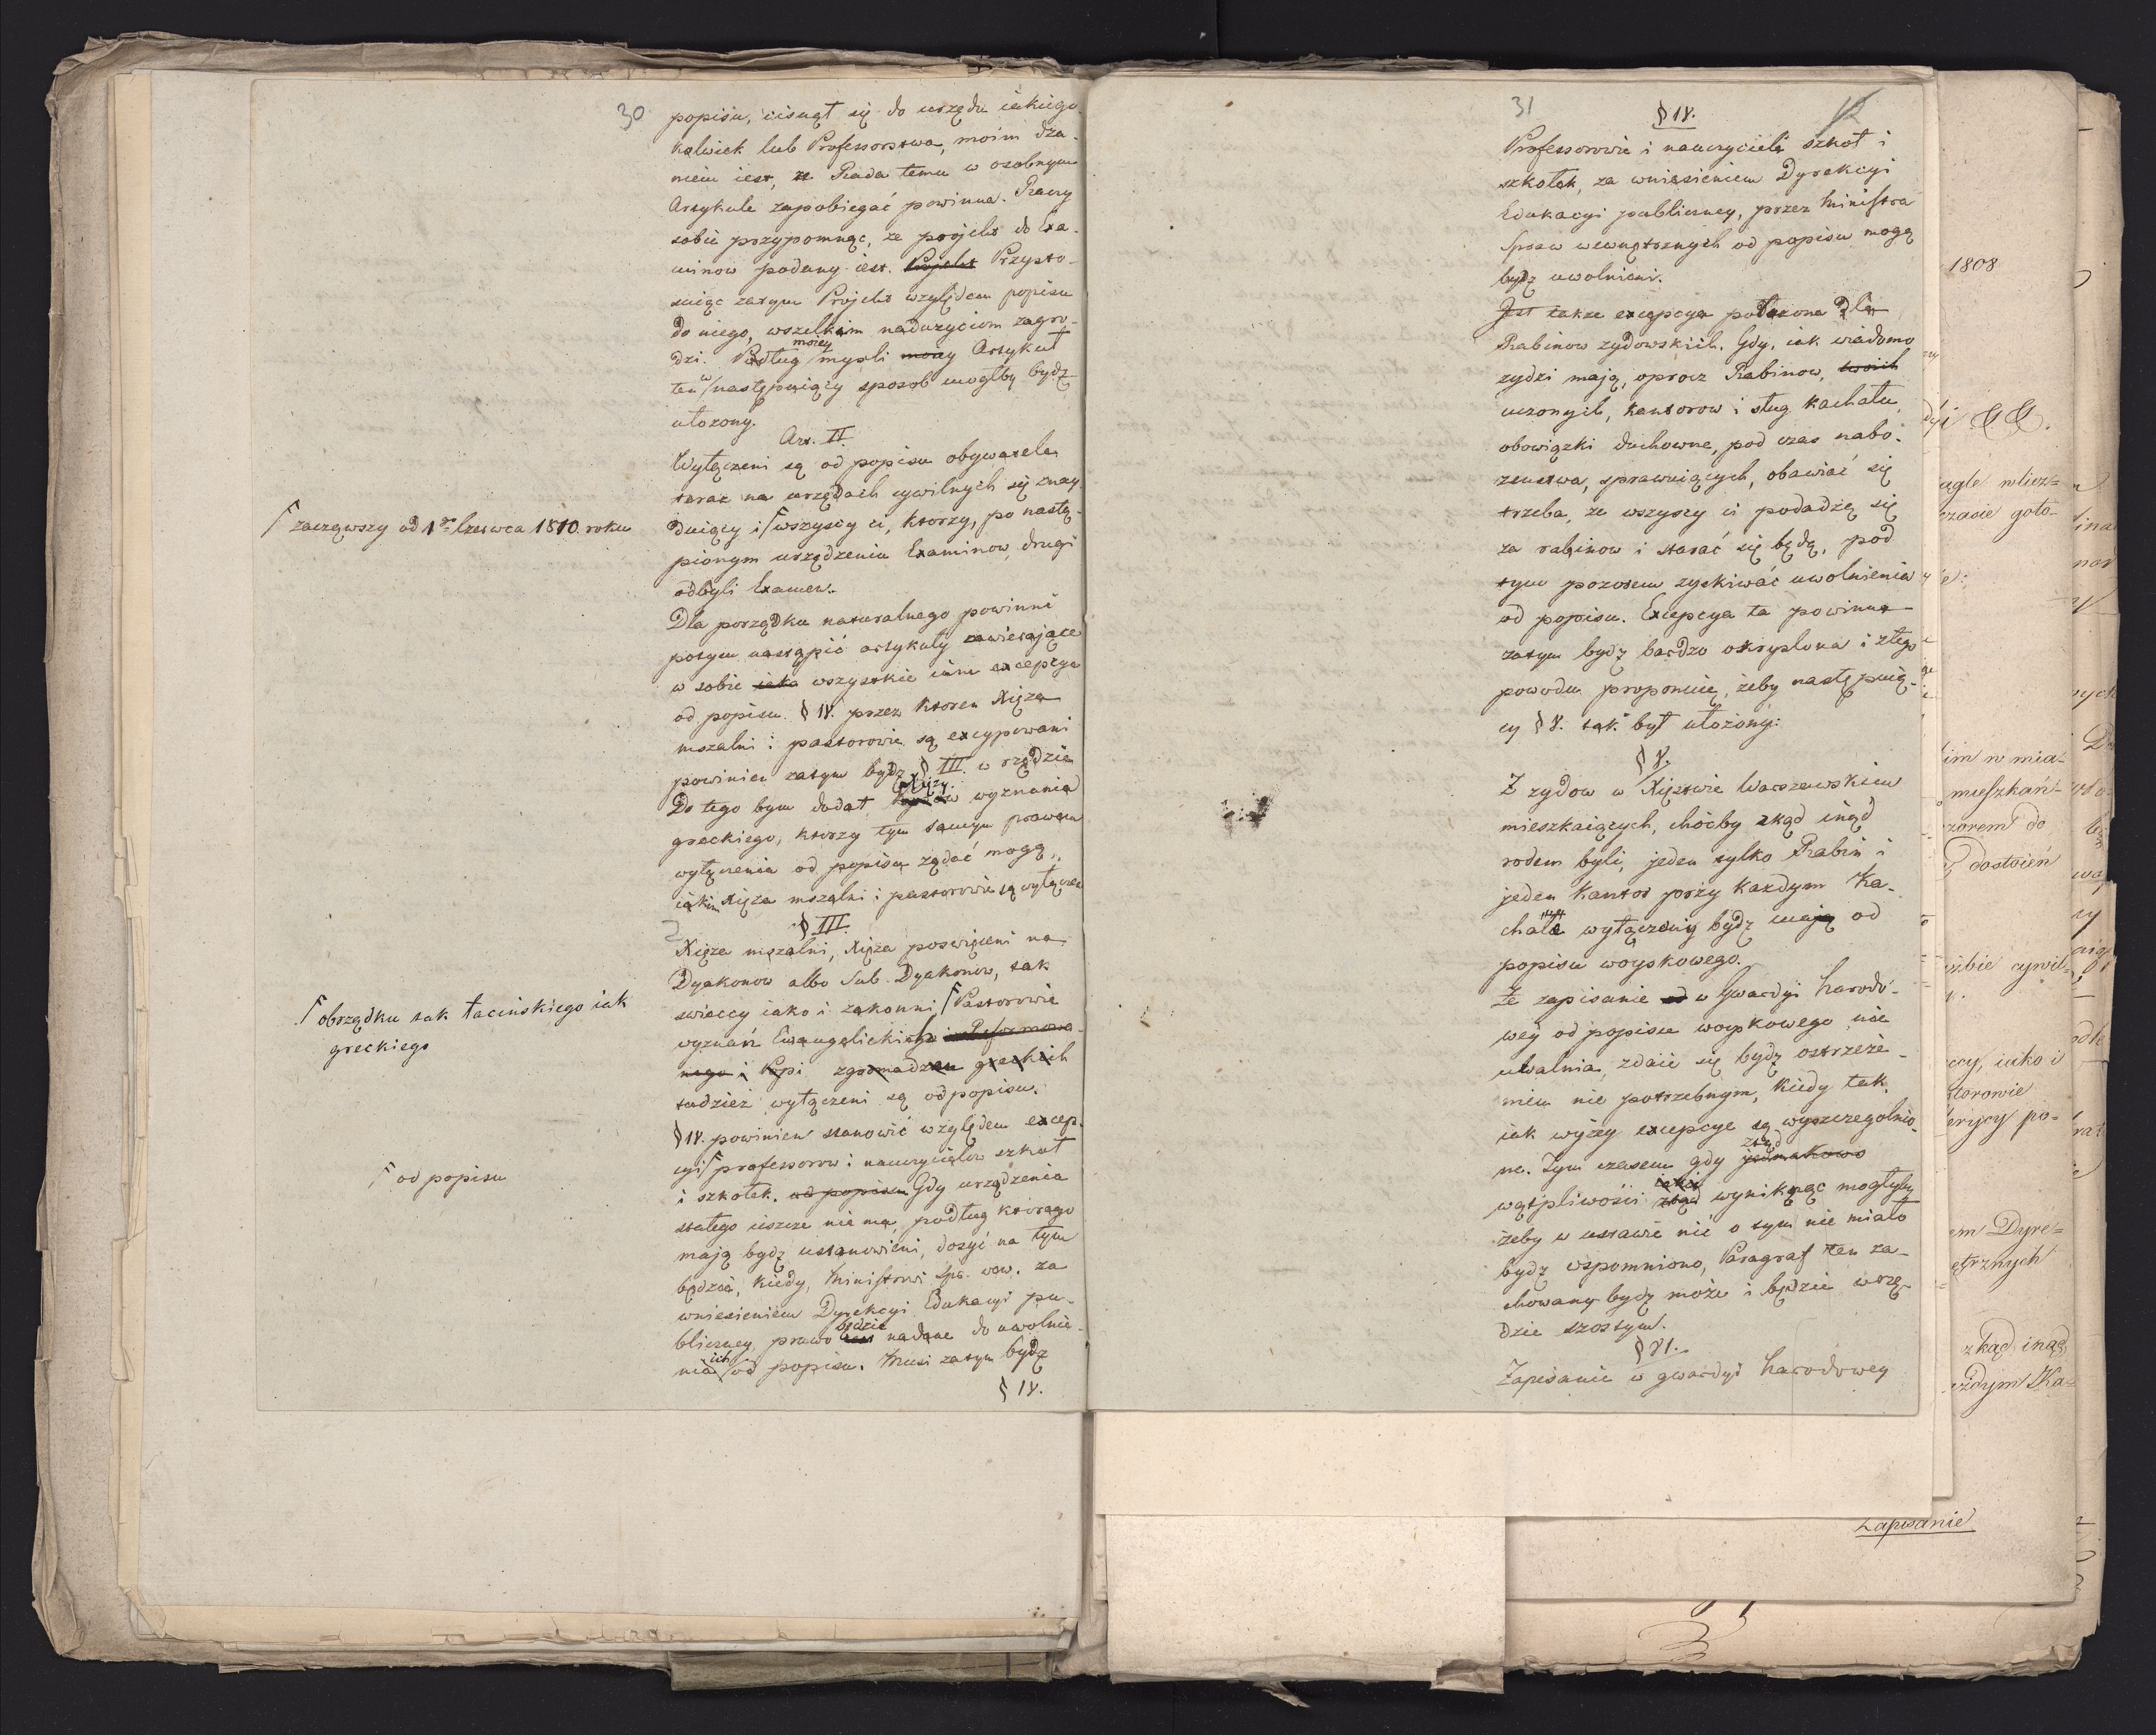 30
popisu, cisnąt się do urzędu iakiego
kolwiek lub Professorstwa, moim zda-
niem iest, że Rada temu w osobnym
Artykule zapobiegać powinna. Raczy
sobie przypomnąc, że projekt do Exa-
minow podany iest. Projekt Przysto-
suiąc zatym Projekt względem popisu
do niego, wszelkim nadużyciom zagro-
dzi. Podług moiey mysli moiey Artykuł
ten w następuiący sposob mogłby bydź
ułożony.
Art. II.
Wyłączeni są od popisu obywatele
teraz na urzędach cywilnych się znay-
duiący i wszyscy ci, ktorzy, po nastą-
pionym urządzeniu Examinow, drugi
odbyli Examen.
zacząwszy od 1go Czerwca 1810. roku
Dla porządku naturalnego powinni
potym nastąpić artykuły zawieraiące
w sobie iaka wszystkie inne excepcye
od popisu. § IV. przez ktoren Xięża
mszalni i pastorowie są excypowani
powinien zatym bydź § III. w rzędzie
Do tego bym dodał Xięży wyznania
greckiego, ktorzy tym samym prawem
wyłączenia od popisu żądać mogą,
iakim Xięża mszalni i pastorowie są wyłączeni
§ III.
Xięża mszalni, Xięża poswięceni na
Dyakonow albo Sub-Dyakonow, tak
swieccy iako i zakonni Pastorowie
obrządku tak łacińskiego iak
greckiego
wyznań Ewangelickich i Reformowa-
nego i Popi zgromadzen greckich
tudzież wyłączeni są od popisu.
§ IV. powinien stanowić względem excep-
cyi professorow i nauczycielow szkoł
od popisu
i szkołek. od popisu Gdy urządzenia
stałego ieszcze nie ma, podług ktorego
mają bydź ustanowieni, dosyć na tym
będzie, kiedy, Ministrowi Spr. wew. za
wniesieniem Dyrekcyi Edukacyi pu-
bliczney, prawo będzie iest nadane do uwolnie-
nia ich od popisu. Musi zatym bydź
§ IV.
31
§ IV.
Professorowie i nauczyciele szkoł i
szkołek, za wniesieniem Dyrekcyi
Edukacyi publiczney, przez Ministra
Spraw wewnętrznych od popisu mogą
bydź uwolnieni.
Jest także excepcya położona dla
Rabinow zydowskich. Gdy, iak wiadomo
zydzi mają, oprocz Rabinow, swoich
uczonych, kantorow i sług kachału
obowiązki duchowne, pod czas nabo-
zenstwa, sprawuiących, obawiać się
trzeba, ze wszyscy ci podadzą się
za rabinow i starać się będą, pod
tym pozorem zyskiwać uwolnienia
od popisu. Excepcya ta powinna
zatym bydź bardzo okryslona i z tego
powodu proponuię, żeby następuią-
cy § V. tak był ułożony:
§ V.
Z zydow w Xięstwie Warszawskiem
mieszkaiących, choćby zkąd inąd
rodem byli, jeden tylko Rabin i
jeden Kantor przy kazdym Ka-
chale wyłączony bydź maią od
popisu woyskowego.
Że zapisanie w Gwardyi Narodo-
wey od popisu woyskowego nie
uwalnia, zdaie się bydź ostrzeże-
niem nie potrzebnym, kiedy tak
iak wyżey excepcye są wyszczegolnio-
ne. Tym czasem gdy ztąd jednakowo
wątpliwości iakie ztąd wyniknąc mogłyby
żeby w ustawie nic o tym nie miało
bydź wspomniono, Paragraf ten za-
chowany bydź może i będzie w rzę-
dzie szostym.
§ VI.
Zapisanie w gwardyi Narodowey
1808
agle wlicz-
czasie goto-
im w mia-
mieszkań-
zorem do
dostoień
użbie cywil-
ccy, iako i
storowie
em Dyre-
ętrznych
zkąd inąd
żdym Ka-
Zapisanie